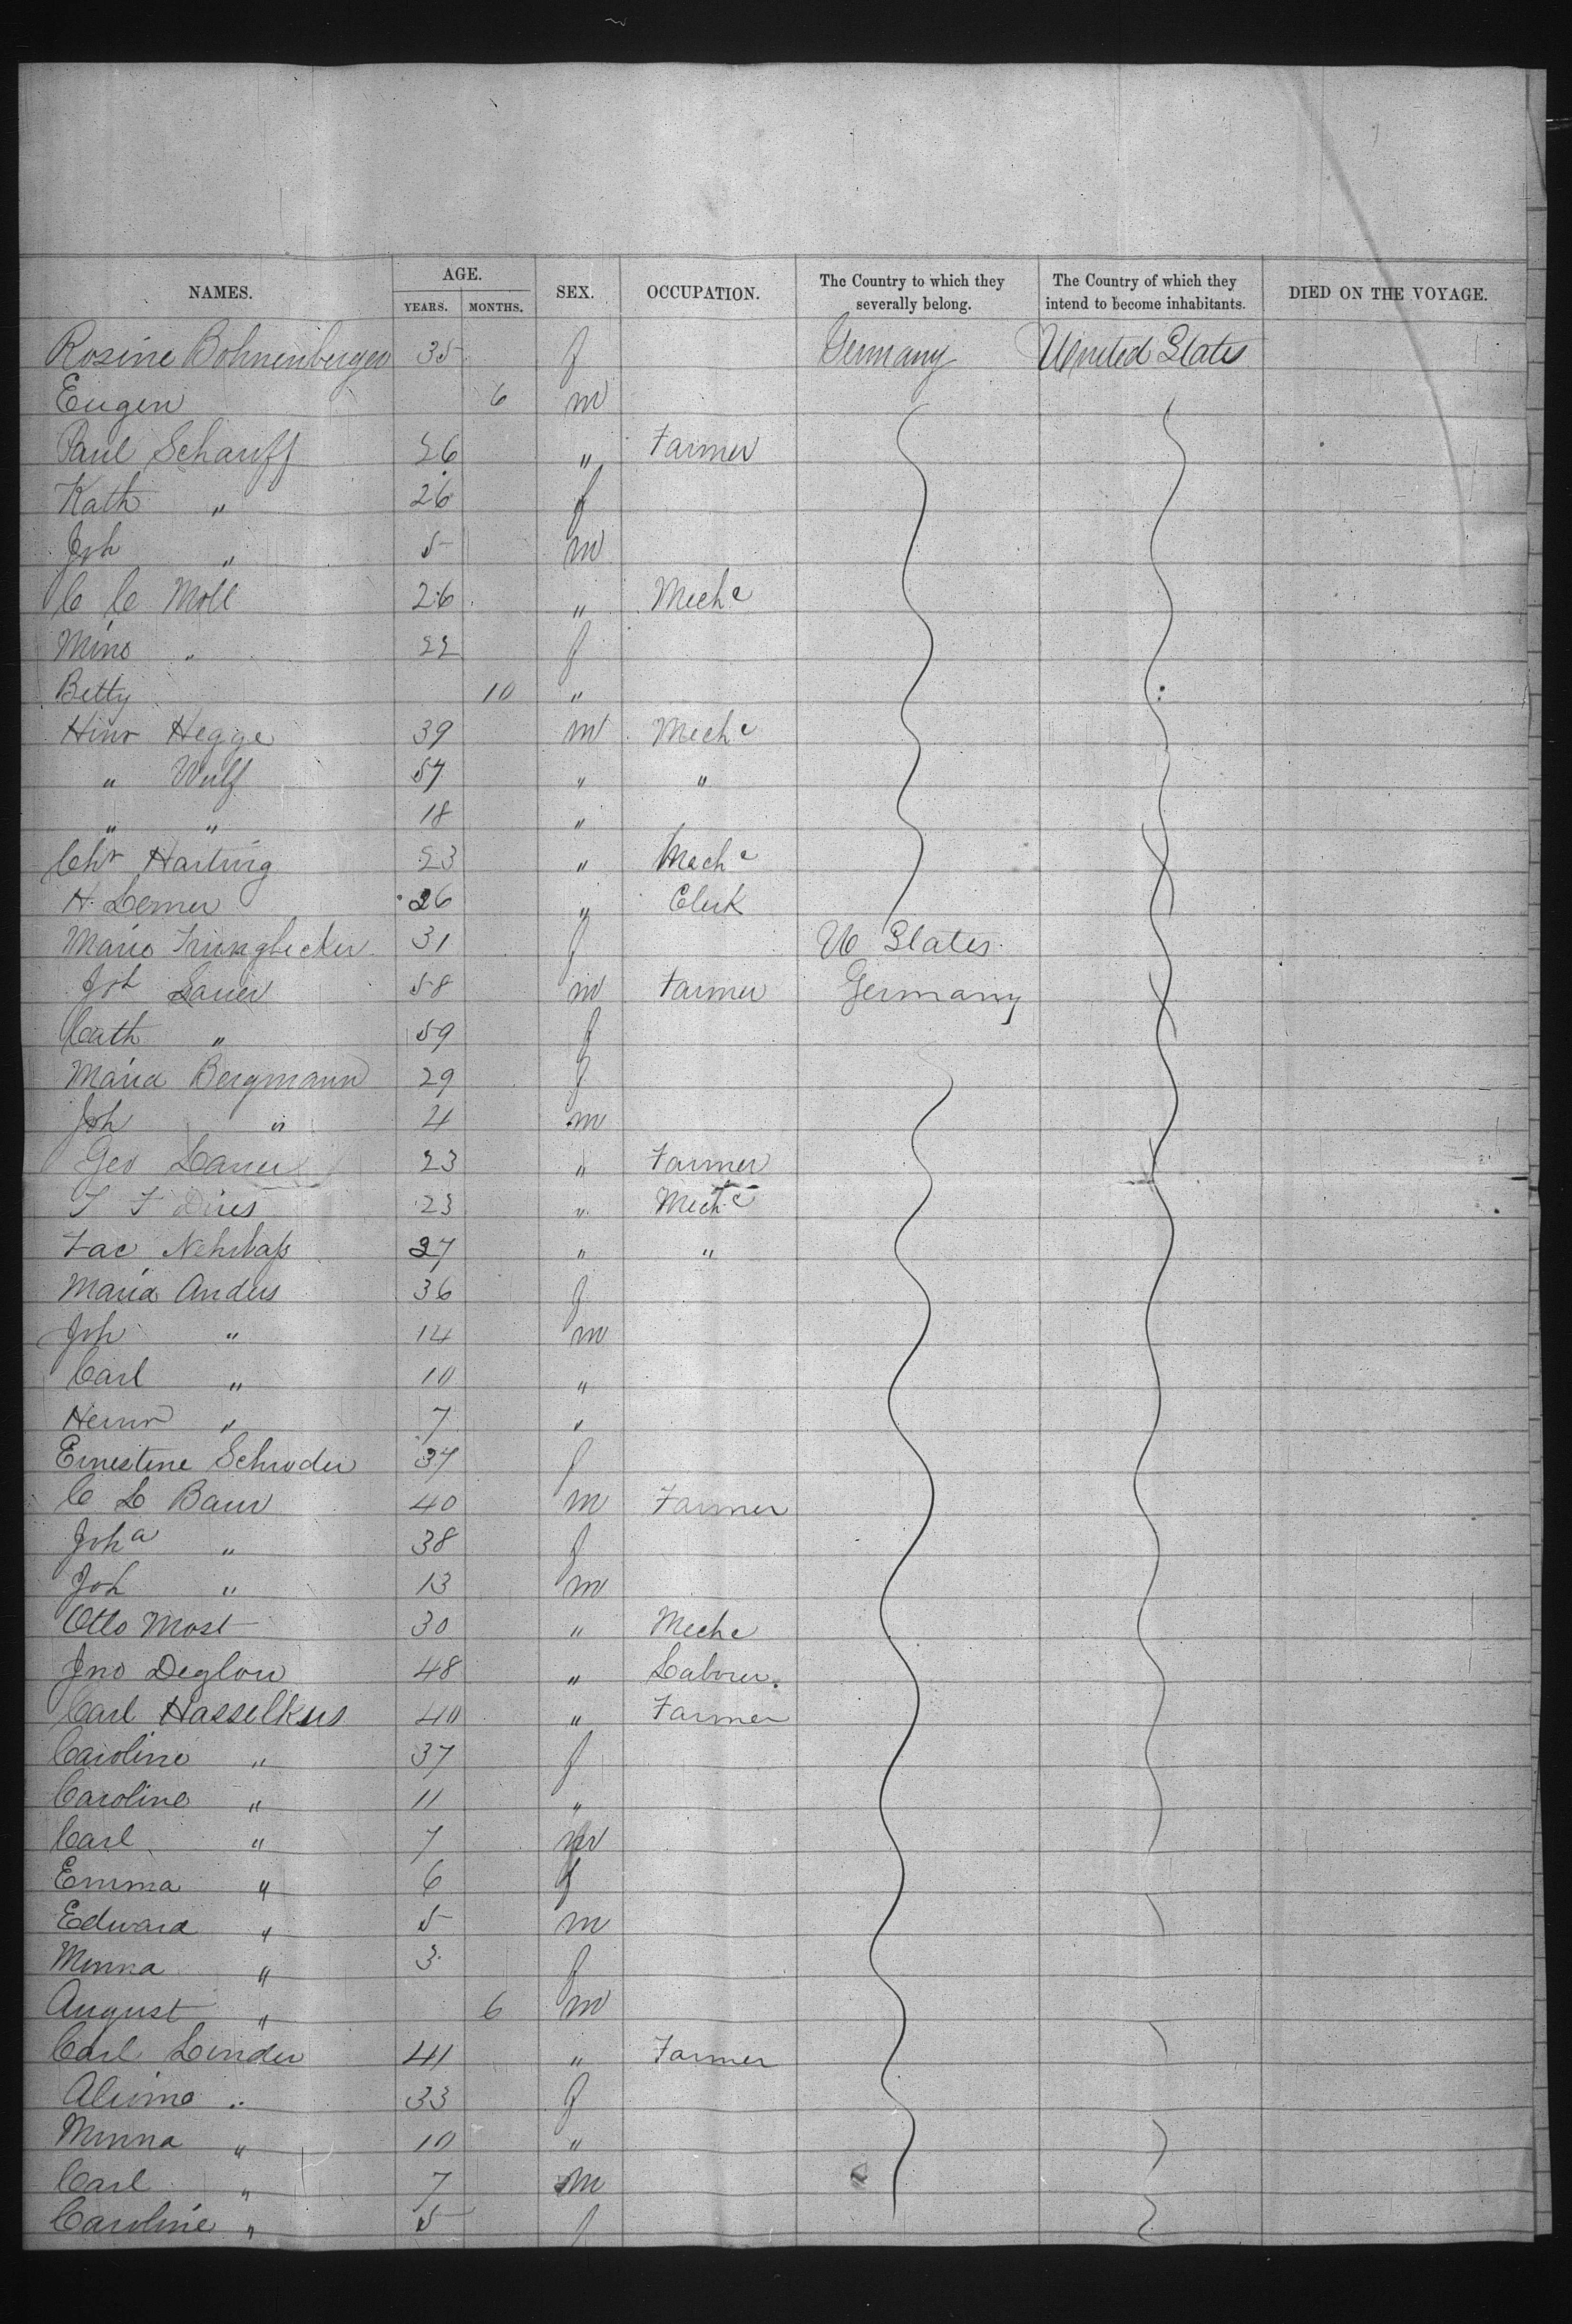 NAMES. AGE. YEARS. MONTHS. SEX. OCCUPATION. The Country to which they severally belong. The Country of which they intend to become inhabitants. DIED ON THE VOYAGE.
Rosine Bohnenberger 35 f Germany United States
Eugen 6 m
Paul Scharff 26 " Farmer
Kath " 26 f
Joh " 5 m
C C Moll 26 " Mechc
Mino " 22 f
Betty 10 "
Hinr Hegge 39 m Mechc
" Wulf 57 " "
" " 18 "
Chr Harting 23 " Mechc
H. Lemer 26 " Clerk
Marie 31 f U States
Joh Lauer 58 m Farmer Germany
Cath " 59 f
Maria Bergmann 29 f
Joh " 4 m
Geo Lauer 23 " Farmer
23 " Mechc
27 " "
Maria Anders 36 f
Joh " 14 m
Carl " 10 "
Heinr " 7 "
Ernestine Schroder 37 f
C L Baur 40 m Farmer
Joha " 38 f
Joh " 13 m
Otto Most 30 " Mechc
Jno Deglow 48 " Labourer.
Carl Hasselkus 40 " Farmer
Caroline " 37 f
Caroline " 11 "
Carl " 7 m
Emma " 6 f
Edward " 5 m
Minna " 3 f
August " 6 m
Carl Linder 41 " Farmer
Alvine " 33 f
Minna " 10 "
Carl " 7 m
Caroline " 5 f